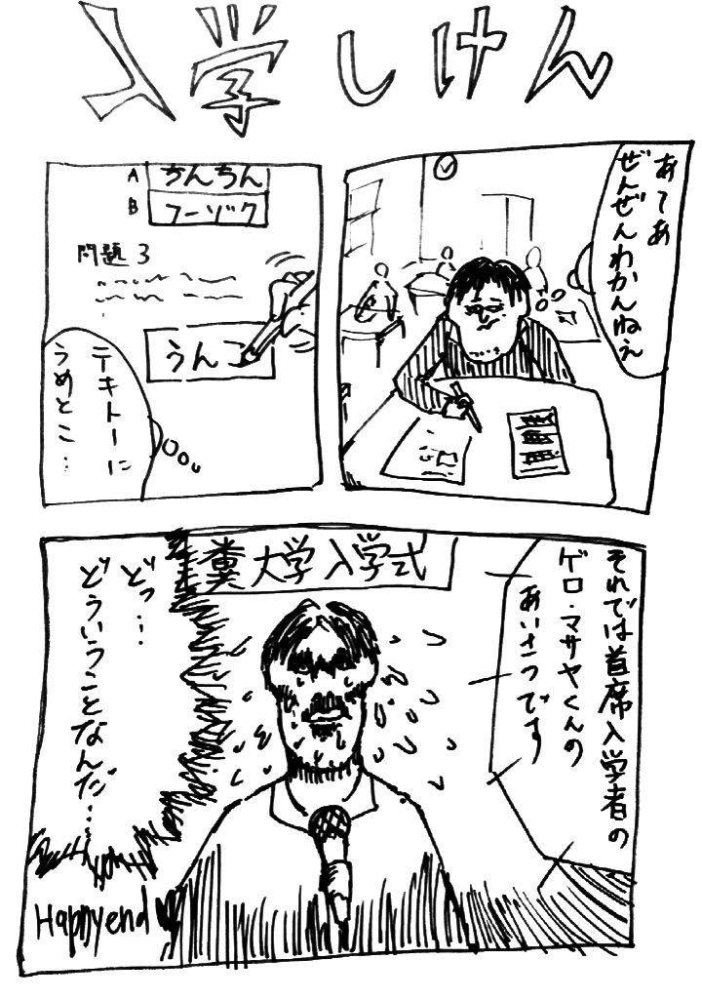 入学しけん
あてあ
ぜんぜんわかんねえ
A かんちん
B フーゾク
問題3
うんこ
テキトーに
うめとこ…
それでは首席入学者の
ゲロ・マサヤくんの
あいさつです
糞大学入学式
どっ…
どういうことなんだ…
Happyend